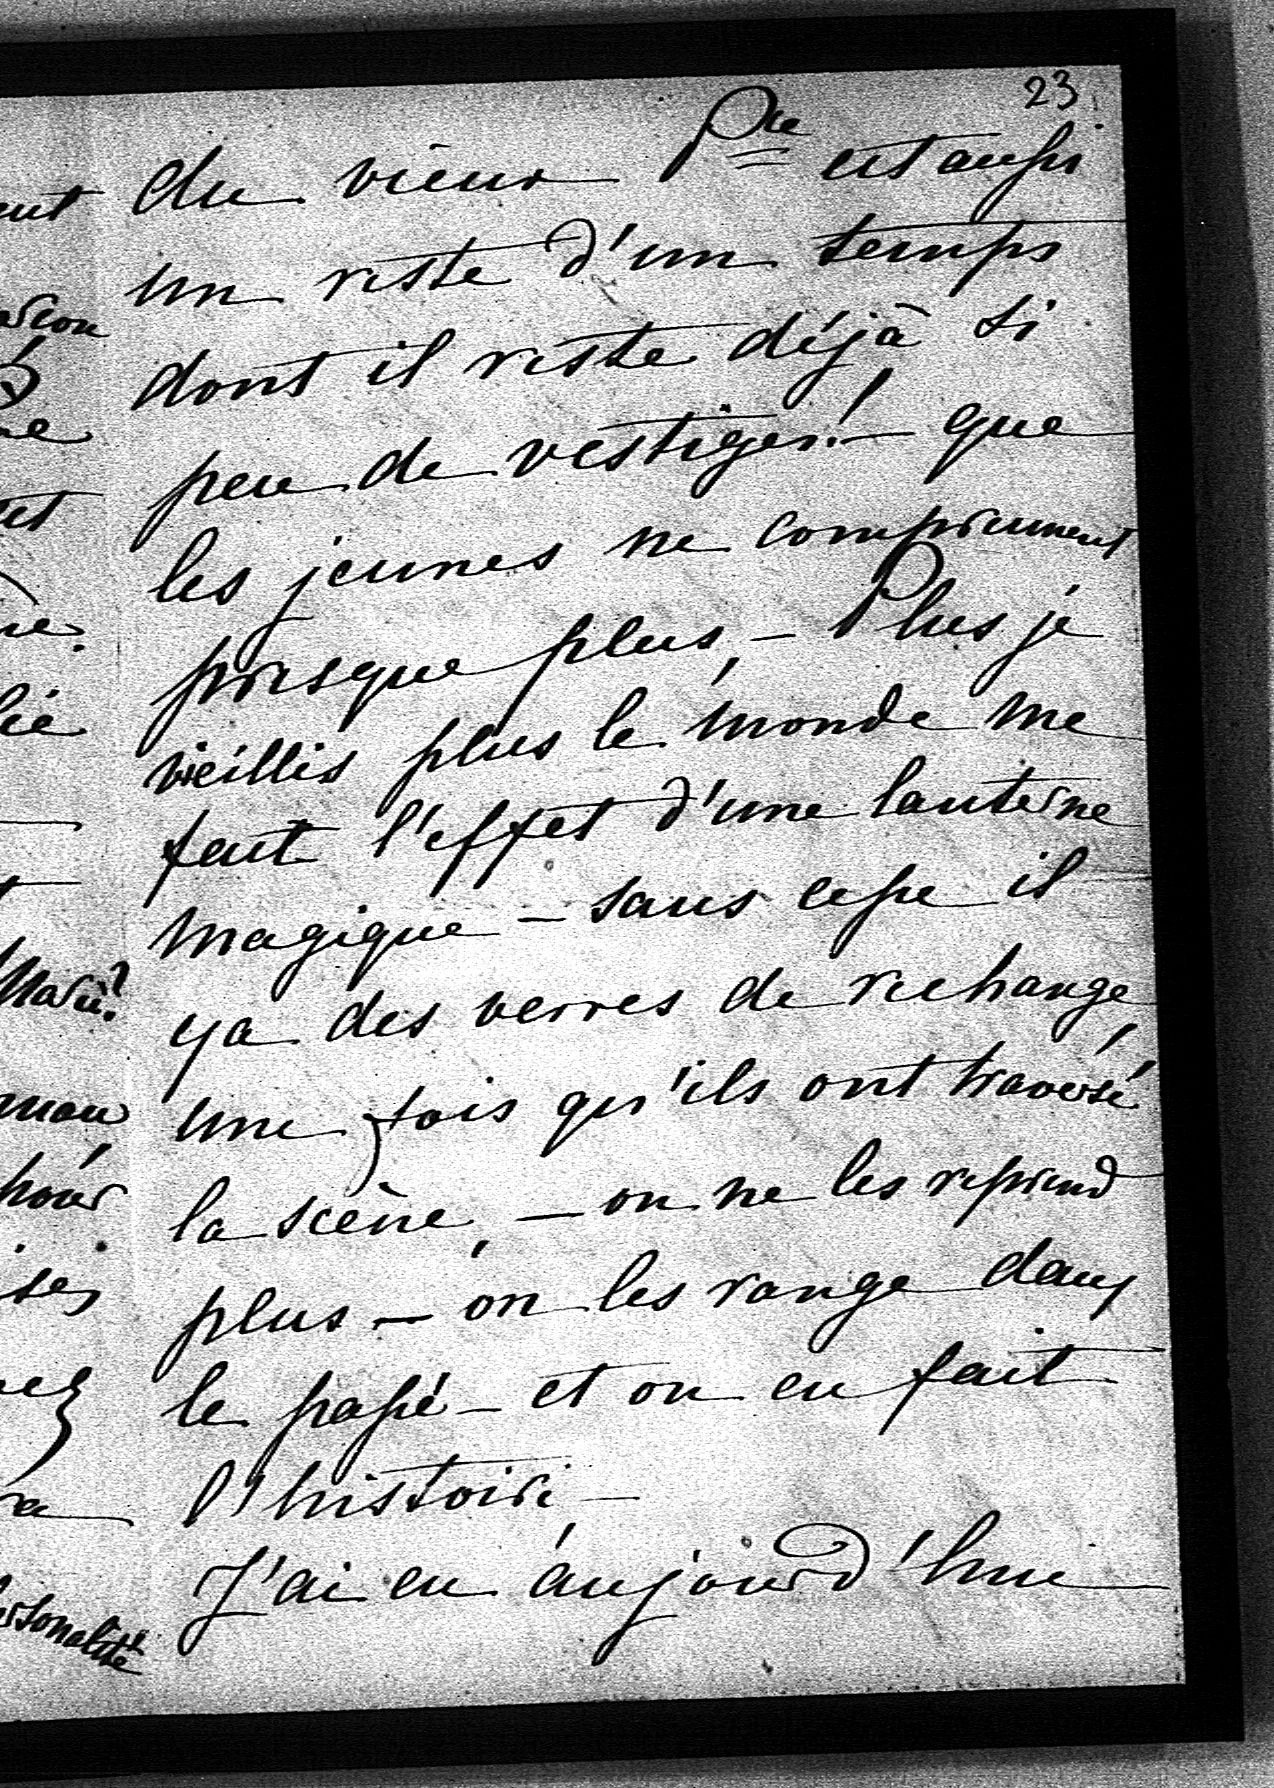 23
du vieux Pce est aussi
un reste d'un temps
dont il reste déjà si
peu de vestiges! – que
les jeunes ne comprennent
presque plus, – Plus je
vieillis plus le monde me
fait l'effet d'une lanterne
magique – sans cesse il
ya des verres de rechange
une fois qu'ils ont traversé
la scène, – on ne les reprend
plus – on les range dans
le passé – et on en fait
l'histoire –
J'ai eu aujourd'hui